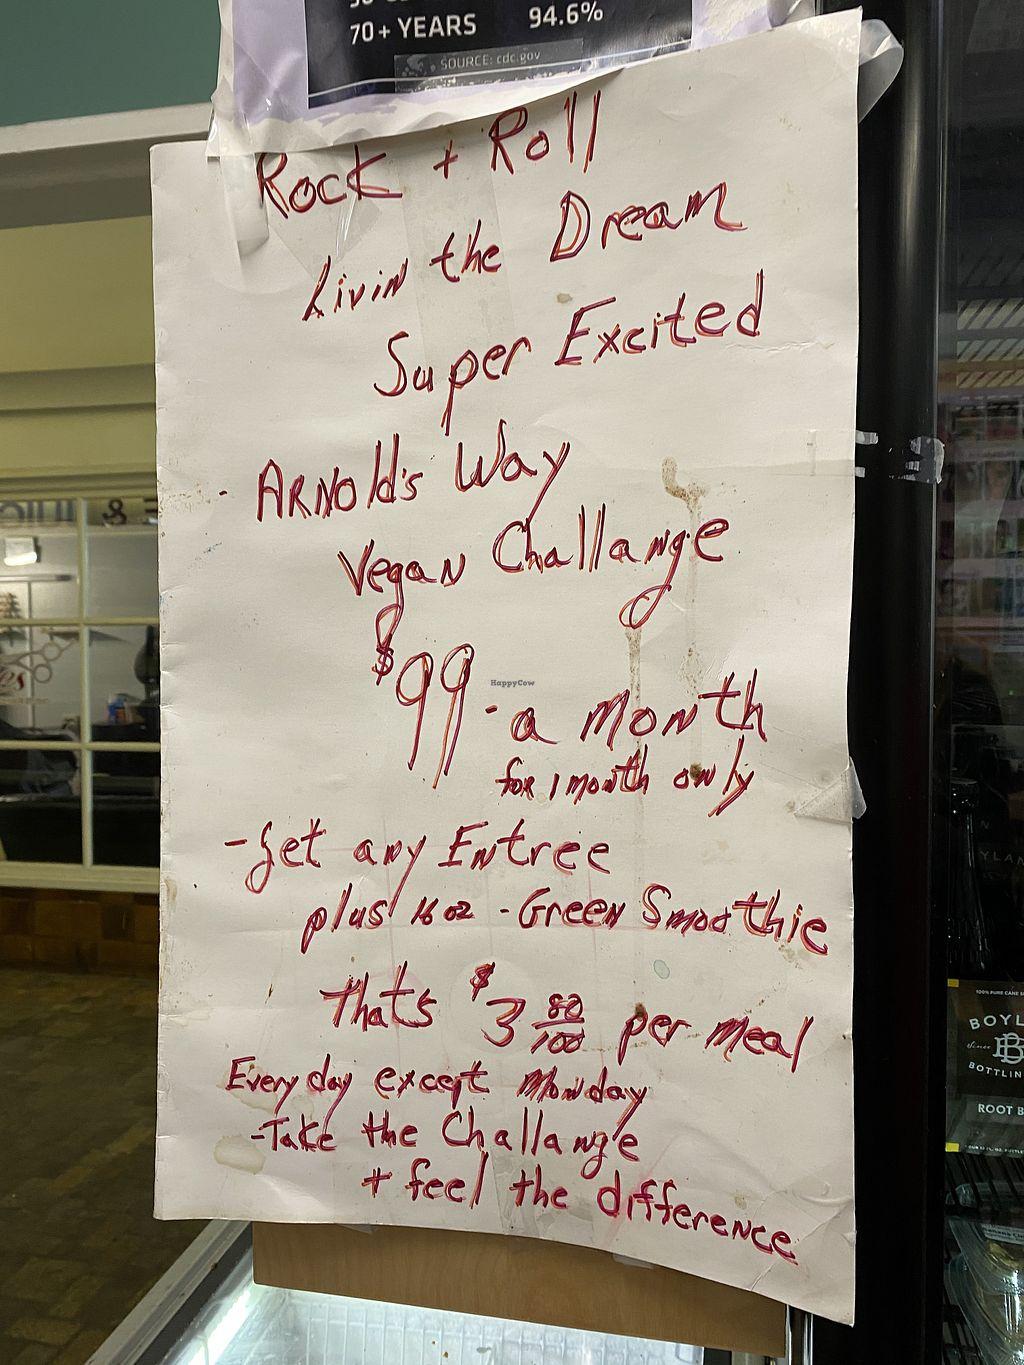 70+ YEARS 94.6%
SOURCE: cdc.gov
Rock + Roll
Livin the Dream
Super Excited
- ARNOld's Way
Vegan Challange
$99 - a month
for 1 month only
- Get any Entree
plus 16 oz - Green Smoothie
thats $3 80/100 per meal
Every day except Monday
- Take the Challange
+ feel the difference
HappyCow
100% PURE CANE
BOYL
Since
B
BOTTLIN
ROOT B